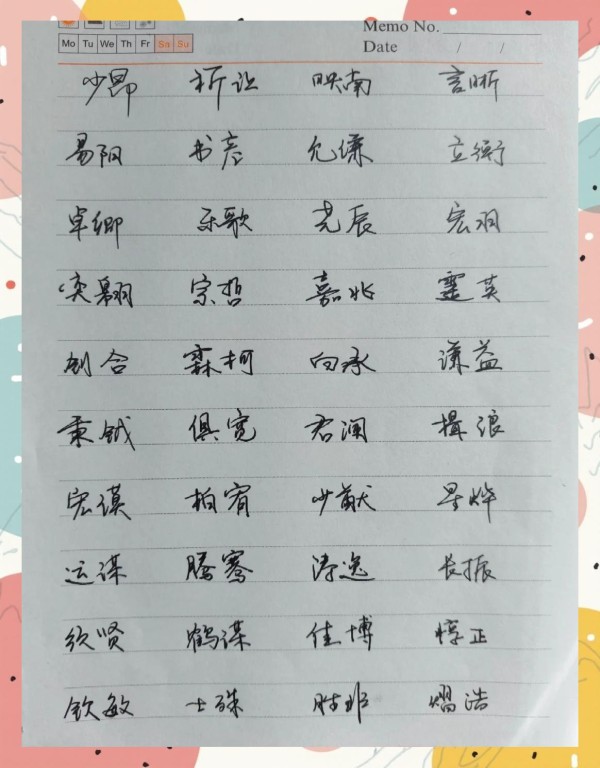 Memo No.
Mo Tu We Th Fr Sa Su
Date / /
少昂 祈让 映南 言晰
易阳 书彦 允谦 立衡
卓卿 乐歌 尧辰 宏羽
奕翱 宗哲 嘉兆 灵英
创合 霖柯 向承 谦益
秉钺 俱宽 君澜 楫浪
宏谟 柏宥 少猷 星烨
运谋 腾骞 涛逸 长振
欣贤 鹤谋 佳博 惇正
钦敏 士殊 熠浩